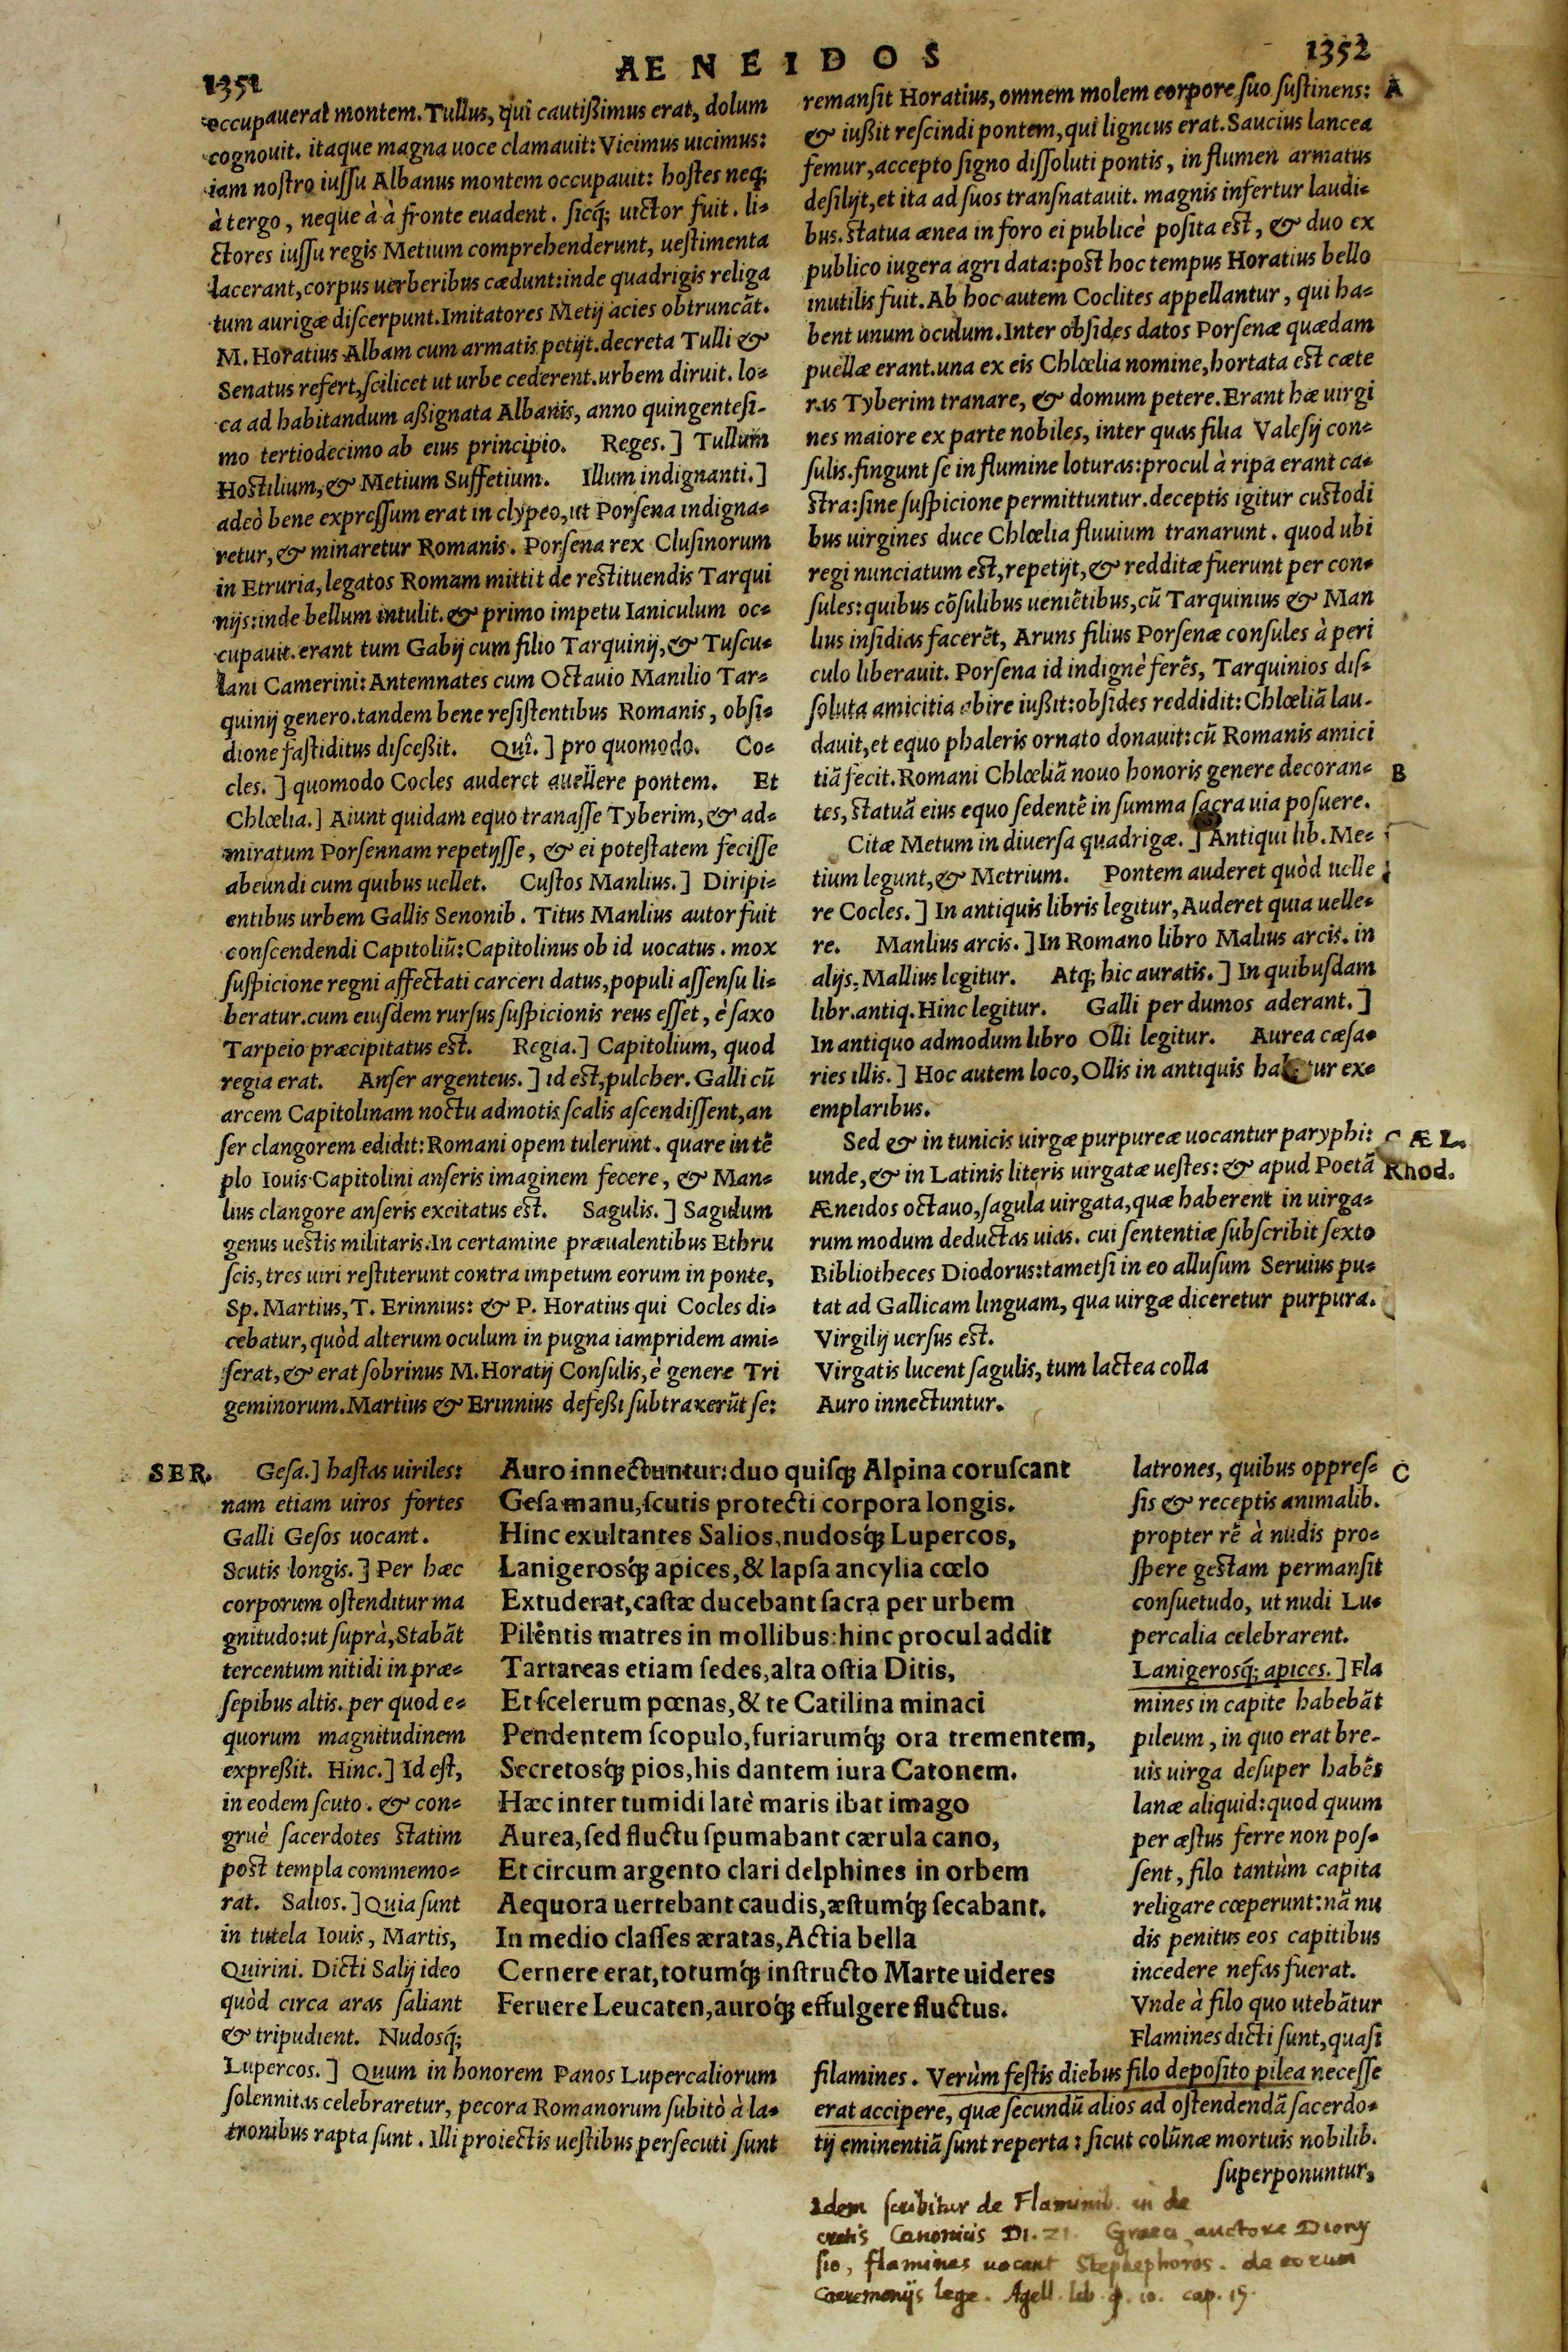 1351
AENEIDOS
1352
occupauerat montem. Tullus, quî cautißimus erat, dolum
cognouit. itaque magna uoce clamauit: Vicimus uicimus:
iam nostro iussu Albanus montem occupauit: hostes neq;
à tergo, neque à à fronte euadent. sicq́; uictor fuit. li-
ctores iussu regis Metium comprehenderunt, uestimenta
lacerant, corpus uerberibus cædunt: inde quadrigis religa
tum aurigæ discerpunt. Imitatores Metij acies obtruncāt.
M. Horatius Albam cum armatis petijt. decreta Tulli &
Senatus refert, scilicet ut urbe cederent. urbem diruit. lo-
ca ad habitandum aßignata Albanis, anno quingentesi-
mo tertiodecimo ab eius principio. Reges.] Tullum
Hostilium, & Metium Suffetium. Illum indignanti.]
adeò bene expressum erat in clypeo, ut Porsena indigna-
retur, & minaretur Romanis. Porsena rex Clusinorum
in Etruria, legatos Romam mittit de restituendis Tarqui
nijs: inde bellum intulit. & primo impetu Ianiculum oc-
cupauit. erant tum Gabij cum filio Tarquinij, & Tuscu-
lani Camerini: Antemnates cum Octauio Manilio Tar-
quinij genero. tandem bene resistentibus Romanis, obsi-
dione fastiditus disceßit. Quî.] pro quomodo. Co-
cles.] quomodo Cocles auderet auellere pontem. Et
Chlœlia.] Aiunt quidam equo tranasse Tyberim, & ad-
miratum Porsennam repetijsse, & ei potestatem fecisse
abeundi cum quibus uellet. Custos Manlius.] Diripi-
entibus urbem Gallis Senonib. Titus Manlius autor fuit
conscendendi Capitoliũ: Capitolinus ob id uocatus. mox
suspicione regni affectati carceri datus, populi assensu li-
beratur. cum eiusdem rursus suspicionis reus esset, è saxo
Tarpeio præcipitatus est. Regia.] Capitolium, quod
regia erat. Anser argenteus.] id est, pulcher. Galli cũ
arcem Capitolinam noctu admotis scalis ascendissent, an
ser clangorem edidit: Romani opem tulerunt. quare in tē
plo Iouis Capitolini anseris imaginem fecere, & Man-
lius clangore anseris excitatus est. Sagulis.] Sagulum
genus uestis militaris. In certamine præualentibus Ethru
scis, tres uiri restiterunt contra impetum eorum in ponte,
Sp. Martius, T. Erinnius: & P. Horatius qui Cocles di-
cebatur, quòd alterum oculum in pugna iampridem ami-
serat, & erat sobrinus M. Horatij Consulis, è genere Tri
geminorum. Martius & Erinnius defeßi subtraxerũt se:
remansit Horatius, omnem molem corpore suo sustinens: A
& iußit rescindi pontem, qui ligneus erat. Saucius lancea
femur, accepto signo dissoluti pontis, in flumen armatus
desilijt, et ita ad suos transnatauit. magnis infertur laudi-
bus. statua ænea in foro ei publicè posita est, & duo ex
publico iugera agri data: post hoc tempus Horatius bello
inutilis fuit. Ab hoc autem Coclites appellantur, qui ha-
bent unum oculum. Inter obsides datos Porsenæ quædam
puellæ erant. una ex eis Chlœlia nomine, hortata est cæte
ras Tyberim tranare, & domum petere. Erant hæ uirgi
nes maiore ex parte nobiles, inter quas filia Valesij con-
sulis. fingunt se in flumine loturas: procul à ripa erant ca-
stra: sine suspicione permittuntur. deceptis igitur custodi
bus uirgines duce Chlœlia fluuium tranarunt. quod ubi
regi nunciatum est, repetijt, & redditæ fuerunt per con-
sules: quibus cōsulibus ueniētibus, cũ Tarquinius & Man
lius insidias facerēt, Aruns filius Porsenæ consules à peri
culo liberauit. Porsena id indignè ferēs, Tarquinios dis-
soluta amicitia abire iußit: obsides reddidit: Chlœliā lau-
dauit, et equo phaleris ornato donauit: cũ Romanis amici
tiā fecit. Romani Chlœliā nouo honoris genere decoran- B
tes, statuā eius equo sedentē in summa sacra uia posuere.
Citæ Metum in diuersa quadrigæ.] Antiqui lib. Me-
tium legunt, & Metrium. Pontem auderet quòd uelle
re Cocles.] In antiquis libris legitur, Auderet quia uelle-
re. Manlius arcis.] In Romano libro Malius arcis. in
alijs, Mallius legitur. Atq; hic auratis.] In quibusdam
libr. antiq. Hinc legitur. Galli per dumos aderant.]
In antiquo admodum libro Olli legitur. Aurea cæsa-
ries illis.] Hoc autem loco, Ollis in antiquis habetur ex-
emplaribus.
Sed & in tunicis uirgæ purpureæ uocantur paryphi: CÆL.
unde, & in Latinis literis uirgatæ uestes: & apud Poetā Rhod.
Æneidos octauo, sagula uirgata, quæ haberent in uirga-
rum modum deductas uias. cui sententiæ subscribit sexto
Bibliotheces Diodorus: tametsi in eo allusum Seruius pu-
tat ad Gallicam linguam, qua uirgæ diceretur purpura.
Virgilij uersus est.
Virgatis lucent sagulis, tum lactea colla
Auro innectuntur.
SER. Gesa.] hastas uiriles:
nam etiam uiros fortes
Galli Gesos uocant.
Scutis longis.] Per hæc
corporum ostenditur ma
gnitudo: ut suprà, Stabāt
tercentum nitidi in præ-
sepibus altis. per quod e-
quorum magnitudinem
expreßit. Hinc.] Id est,
in eodem scuto. & con-
gruè sacerdotes statim
post templa commemo-
rat. Salios.] Quia sunt
in tutela Iouis, Martis,
Quirini. Dicti Salij ideo
quòd circa aras saliant
& tripudient. Nudosq́;
Lupercos.] Quum in honorem Panos Lupercaliorum
solennitas celebraretur, pecora Romanorum subitò à la-
tronibus rapta sunt. Illi proiectis uestibus persecuti sunt
Auro innectuntur: duo quisq; Alpina coruscant
Gesa manu, scutis protecti corpora longis.
Hinc exultantes Salios, nudosq́; Lupercos,
Lanigerosq́; apices, & lapsa ancylia cœlo
Extuderat, castæ ducebant sacra per urbem
Pilentis matres in mollibus: hinc procul addit
Tartareas etiam sedes, alta ostia Ditis,
Et scelerum pœnas, & te Catilina minaci
Pendentem scopulo, furiarumq́; ora trementem,
Secretosq́; pios, his dantem iura Catonem.
Hæc inter tumidi latè maris ibat imago
Aurea, sed fluctu spumabant cærula cano,
Et circum argento clari delphines in orbem
Aequora uertebant caudis, æstumq́; secabant.
In medio classes æratas, Actia bella
Cernere erat, totumq́; instructo Marte uideres
Feruere Leucaten, auroq́; effulgere fluctus.
latrones, quibus oppres- C
sis & receptis animalib.
propter rē à nudis pro-
spere gestam permansit
consuetudo, ut nudi Lu-
percalia celebrarent.
Lanigerosq́; apices.] Fla
mines in capite habebāt
pileum, in quo erat bre-
uis uirga desuper habēs
lanæ aliquid: quod quum
per æstus ferre non pos-
sent, filo tantùm capita
religare cœperunt: nā nu
dis penitus eos capitibus
incedere nefas fuerat.
Vnde à filo quo utebātur
Flamines dicti sunt, quasi
filamines. Verùm festis diebus filo deposito pilea necesse
erat accipere, quæ secundũ alios ad ostendendā sacerdo-
tij eminentiā sunt reperta: sicut colũnæ mortuis nobilib.
superponuntur,
Idem scribitur de Flaminib. in de
cretis Canonicis Di. 21. Graeci auctore Diony
sio, flamines uocant Stephephoros. de eorum
Caeremonijs lege. Agell. lib. 10. cap. 15.